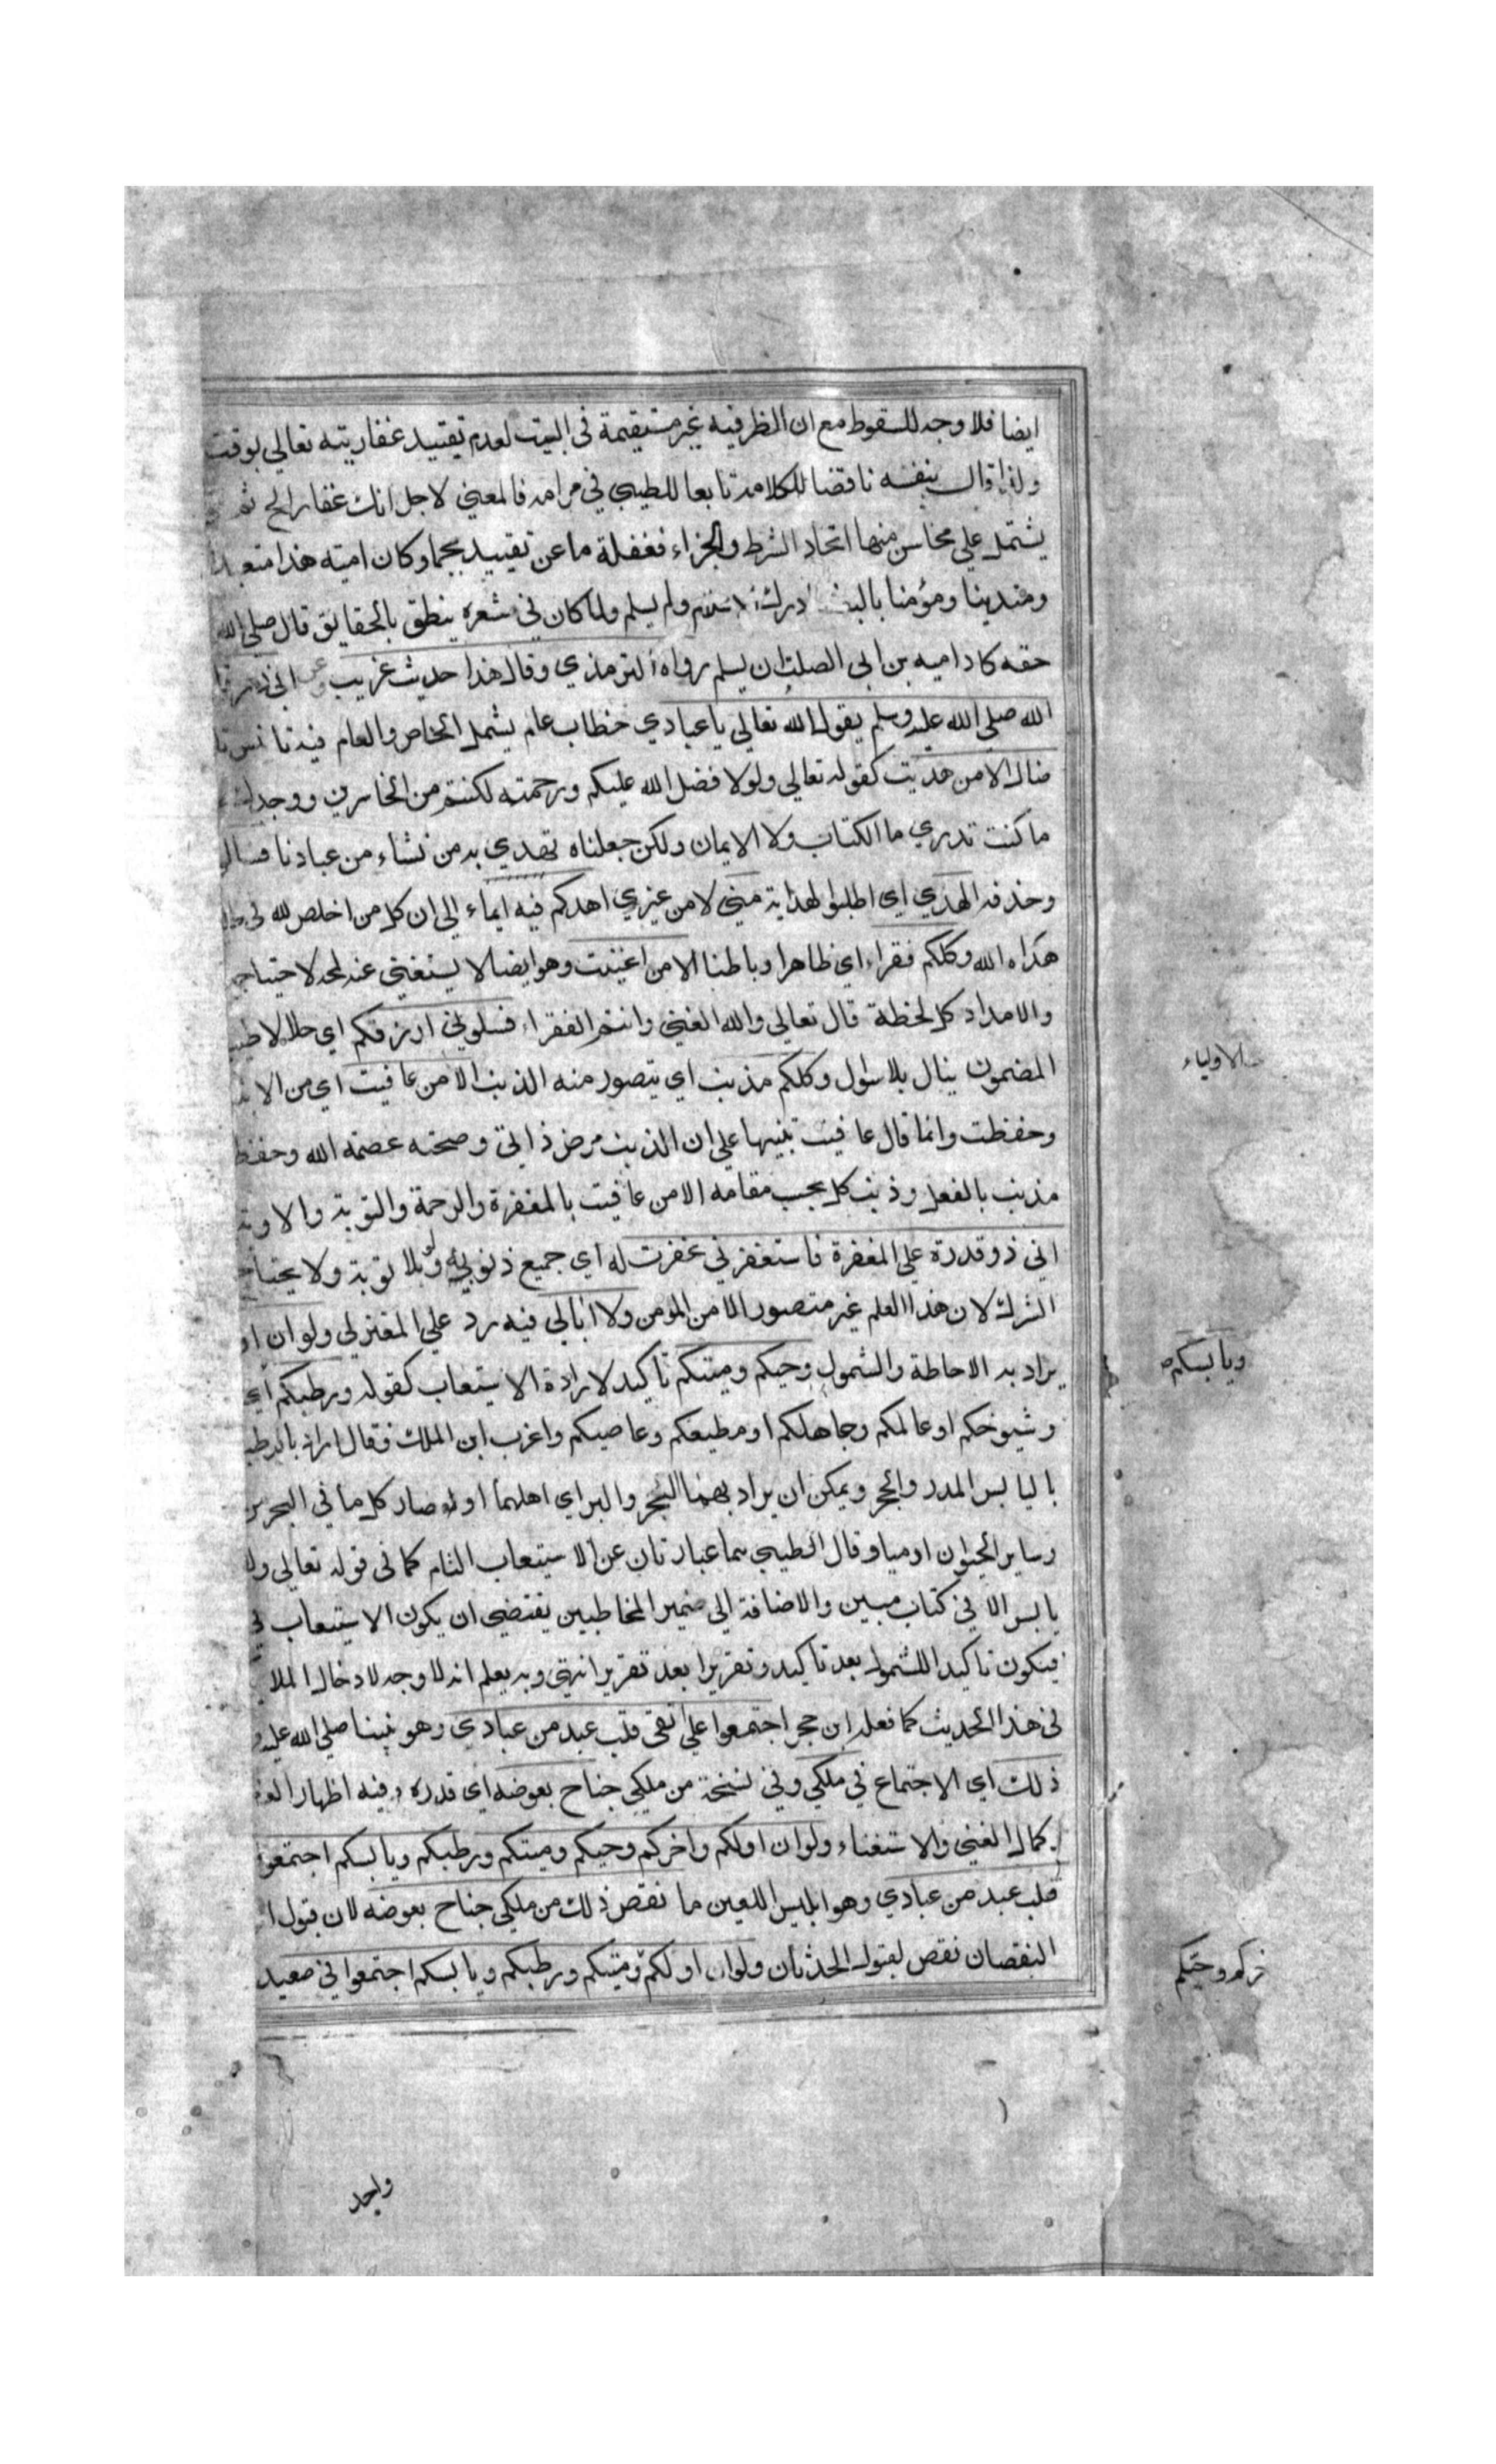 ايضا فلا وجه للسقوط مع ان الظرفية غير مستقيمة في البيت لعدم تقييد غفاريته تعالي بوقت
ولذا قال بنفسه ناقضا لكلامه تابعا للطيبي في مرامه فالمعني لاجل انك غفار الخ ثم
يشتمل علي محاسن منها اتحاد الشرط والجزاء فغفلة ما عن تقييد بجما وكان امية هذا متعبدا
ومتدينا ومؤمنا بالبعث ادرك الاسلام ولم يسلم ولما كان في شعره ينطق بالحقايق قال صلي الله
حقه كاد اميه بن ابي الصلت ان يسلم رواه الترمذي وقال هذا حديث غريب وعن ابي ذر
الله صلي الله عليه وسلم يقول الله تعالي يا عبادي خطاب عام يشمل الخاص والعام
ضال الا من هديت كقوله تعالي ولولا فضل الله عليكم ورحمته لكنتم من الخاسرين ووجدك
ما كنت تدري ما الكتاب ولا الايمان ولكن جعلناه نهدي به من نشاء من عبادنا فسالوا
وحذفه الهدي اي اطلبوا لهداية مني لا من غيري اهدكم فيه ايماء الي ان كل من اخلص لله في
هداه الله وكلكم فقراء اي ظاهرا وباطنا الا من اغنيت وهو ايضا لا يستغني عنه لمحة لاحتياجه
والامداد كل لحظة قال تعالي والله الغني وانتم الفقراء فسلوني ارزقكم اي حلالا طيبا
المضمون ينال بلا سؤل وكلكم مذنب اي يتصور منه الذنب الا من عافيت اي من الانبيا
وحفظت وانما قال عافيت تنبيها علي ان الذنب مرض ذاتي وصحته عصمة الله وحفظ
مذنب بالفعل وذنب كل بحسب مقامه الا من عافيت بالمغفرة والرحمة والتوبة والاوبة
اني ذو قدرة علي المغفرة فاستغفرني غفرت له اي جميع ذنوبه ولا توبة ولا يحتاج
الشرك لان هذا العلم غير متصور الا من المومن ولا ابالي فيه رد علي المعتزلي ولو ان او
يراد به الاحاطة والشمول وحيكم وميتكم تاكيد لارادة الاستيعاب كقوله ورطبكم اي
وشيوخكم او عالمكم وجاهلكم او مطيعكم وعاصيكم واغرب ابن الملك فقال اراد بالرطب
باليابس المدر والحجر ويمكن ان يراد بهما البحر والبر اي اهلهما او لو صار كل ما في البحر
وساير الحيوان ادميا وقال الطيبي هما عبارتان عن الاستيعاب التام كما في قوله تعالي ولا
يابس الا في كتاب مبين والاضافة الي ضمير المخاطبين يقتضي ان يكون الاستيعاب في
فيكون تاكيدا للشمول بعد تاكيد وتقريرا بعد تقرير انتهي وبه يعلم انه لا وجه لادخال الملا
في هذا الحديث كما فعله ابن حجر اجتمعوا علي اتقي قلب عبد من عبادي وهو نبينا صلي الله عليه و
ذلك اي الاجتماع في ملكي وفي نسخة من ملكي جناح بعوضه اي قدره وفيه اظهار
كمال الغني والاستغناء ولو ان اولكم واخركم وحيكم وميتكم ورطبكم ويابسكم اجتمعوا
قلب عبد من عبادي وهو ابليس اللعين ما نقص ذلك من ملكي جناح بعوضه لان قبول
النقصان نقص لقبول الحدثان ولو ان اولكم وميتكم ورطبكم ويابسكم اجتمعوا في صعيد
واحد
الاولياء
ويابسكم
خركم وحيكم